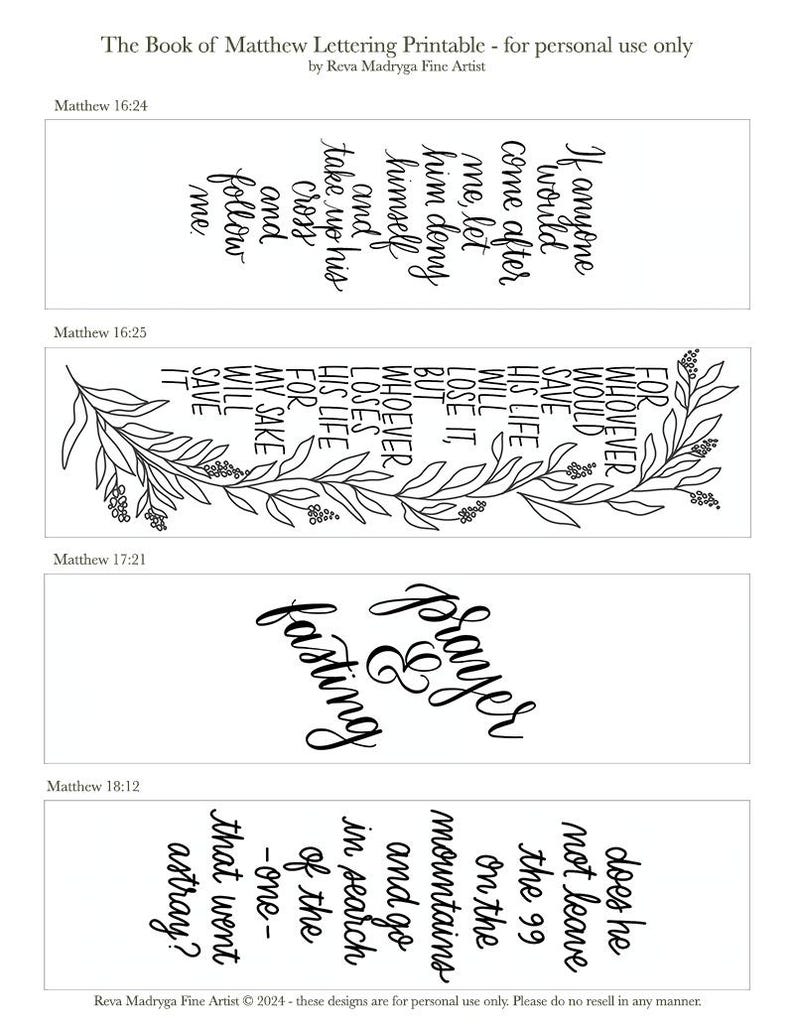 The Book of Matthew Lettering Printable - for personal use only
by Reva Madryga Fine Artist
Matthew 16:24
If anyone
would
come after
me, let
him deny
himself
and
take up his
cross
and
follow
me.
Matthew 16:25
FOR
WHOVEVER
WOULD
SAVE
HIS LIFE
WILL
LOSE IT,
BUT
WHOEVER
LOSES
HIS LIFE
FOR
MY SAKE
WILL
SAVE
IT
Matthew 17:21
prayer
&
fasting
Matthew 18:12
does he
not leave
the 99
on the
mountains
and go
in search
of the
-one-
that went
astray?
Reva Madryga Fine Artist © 2024 - these designs are for personal use only. Please do no resell in any manner.